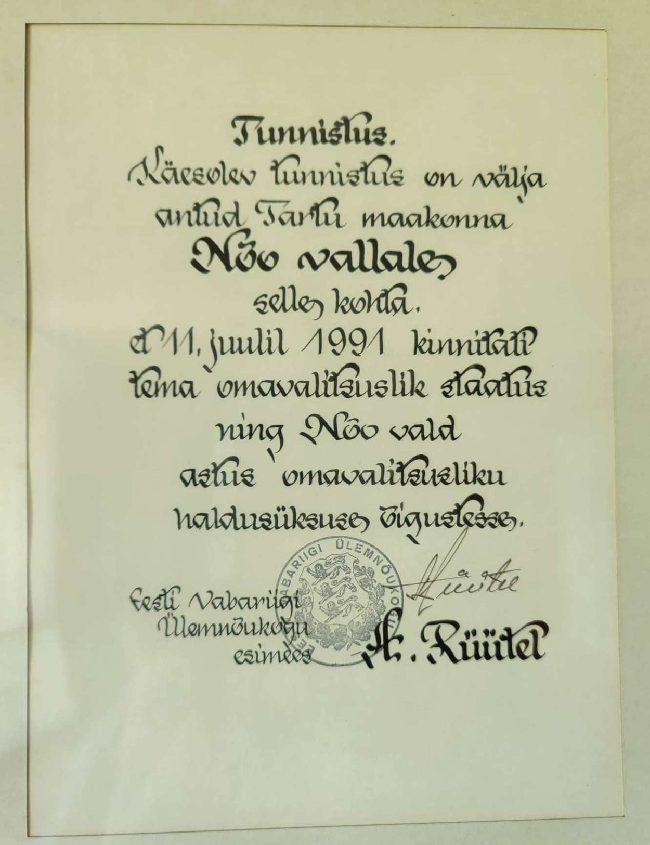 Tunnistus.
Käesolev tunnistus on välja
antud Tartu maakonna
Nõo vallale
selle kohta,
et 11. juulil 1991 kinnitati
tema omavalitsuslik staatus
ning Nõo vald
astus omavalitsusliku
haldusüksuse õigustesse.
VABARIIGI ÜLEMNÕUKOGU
Eesti Vabariigi
Ülemnõukogu
esimees
A. Rüütel
A. Rüütel